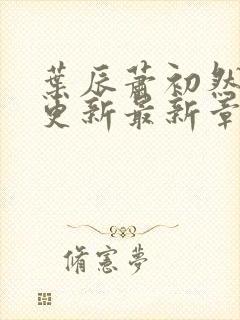 葉辰蕭初然
更新最新章
脩憲夢